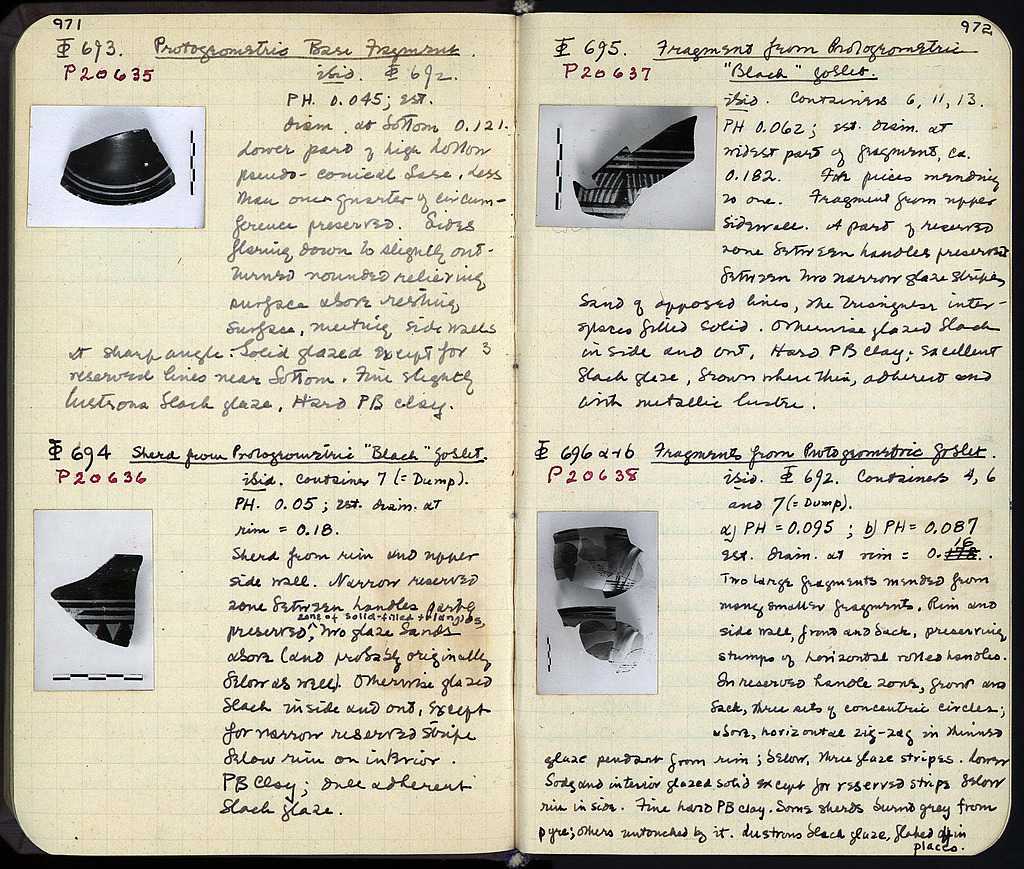 971
Φ 693. Protogeometric Base Fragment.
P20635
ibid. Φ 692.
PH. 0.045; est.
Diam. at bottom 0.121.
Lower part of high hollow
pseudo-conical base. Less
than one quarter of circum-
ference preserved. Sides
flaring down to slightly out-
turned rounded relieving
surface above resting
surface, meeting side walls
at sharp angle. Solid glazed except for 3
reserved lines near bottom. Fine slightly
lustrous black glaze, Hard PB clay.
Φ 694 Sherd from Protogeometric "Black" Goblet.
P20636
ibid. container 7 (= Dump).
PH. 0.05; est. diam. at
rim = 0.18.
Sherd from rim and upper
side wall. Narrow reserved
zone between handles partly
zone of solid-filled triangles,
preserved; two glaze bands
above (and probably originally
below as well). Otherwise glazed
black inside and out, except
for narrow reserved stripe
below rim on interior.
PB Clay; dull adherent
black glaze.
972
Φ 695. Fragment from Protogeometric
P20637
"Black" Goblet.
ibid. Containers 6, 11, 13.
PH 0.062; est. diam. at
widest part of fragment, ca.
0.182. Five pieces mending
to one. Fragment from upper
sidewall. A part of reserved
zone between handles preserved
between two narrow glaze stripes
band of opposed lines, the triangular inter-
spaces filled solid. Otherwise glazed black
in side and out, Hard PB clay; excellent
black glaze, brown where thin, adherent and
with metallic lustre.
Φ 696 a+b Fragments from Protogeometric Goblet.
P20638
ibid. Φ 692. Containers 4, 6
and 7 (= Dump).
a) PH = 0.095; b) PH = 0.087
est. diam. at rim = 0.16.
Two large fragments mended from
many smaller fragments. Rim and
side wall, front and back, preserving
stumps of horizontal rolled handles.
In reserved handle zone, front and
back, three sets of concentric circles;
above, horizontal zig-zag in thinned
glaze pendant from rim; below, three glaze stripes. Lower
body and interior glazed solid except for reserved stripe below
rim inside. Fine hard PB clay. Some sherds burnt grey from
pyre; others untouched by it. Lustrous black glaze, flaked off in
places.